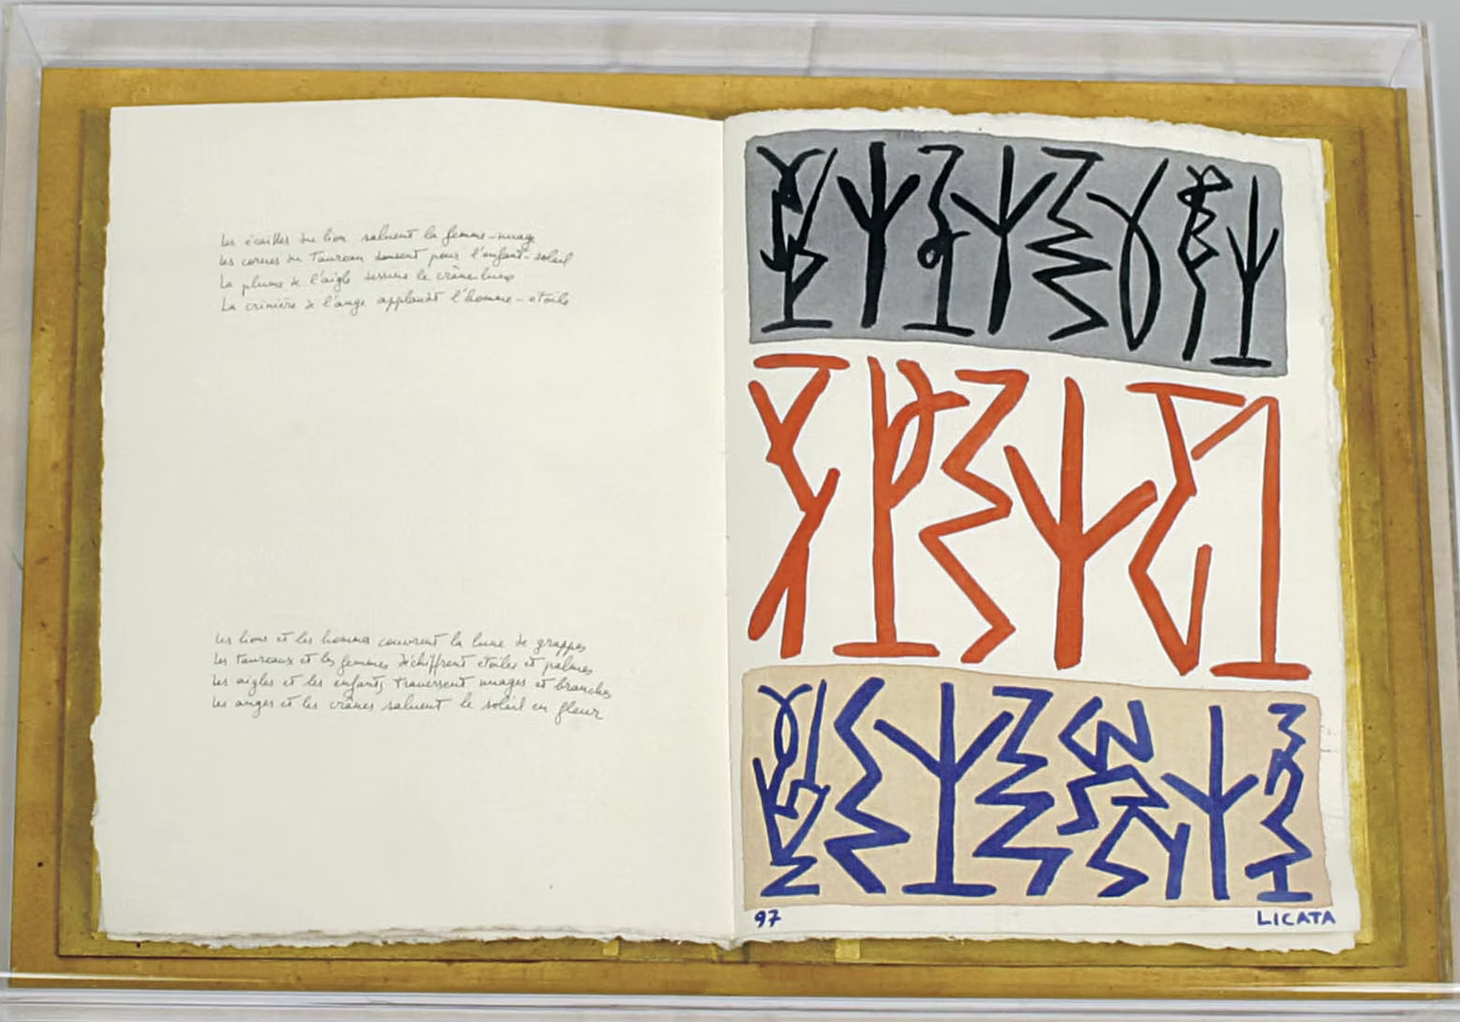 Les écailles du lion saluent la femme-nuage
Les cornes du taureau dansent pour l'enfant-soleil
La plume de l'aigle dessine le crâne-lune
La crinière de l'ange applaudit l'homme-etoile
Les lions et les hommes couvrent la lune de grappes
Les taureaux et les femmes déchiffrent etoiles et palmes
Les aigles et les enfants traversent nuages et branches
Les anges et les crânes saluent le soleil en fleur
97 LICATA